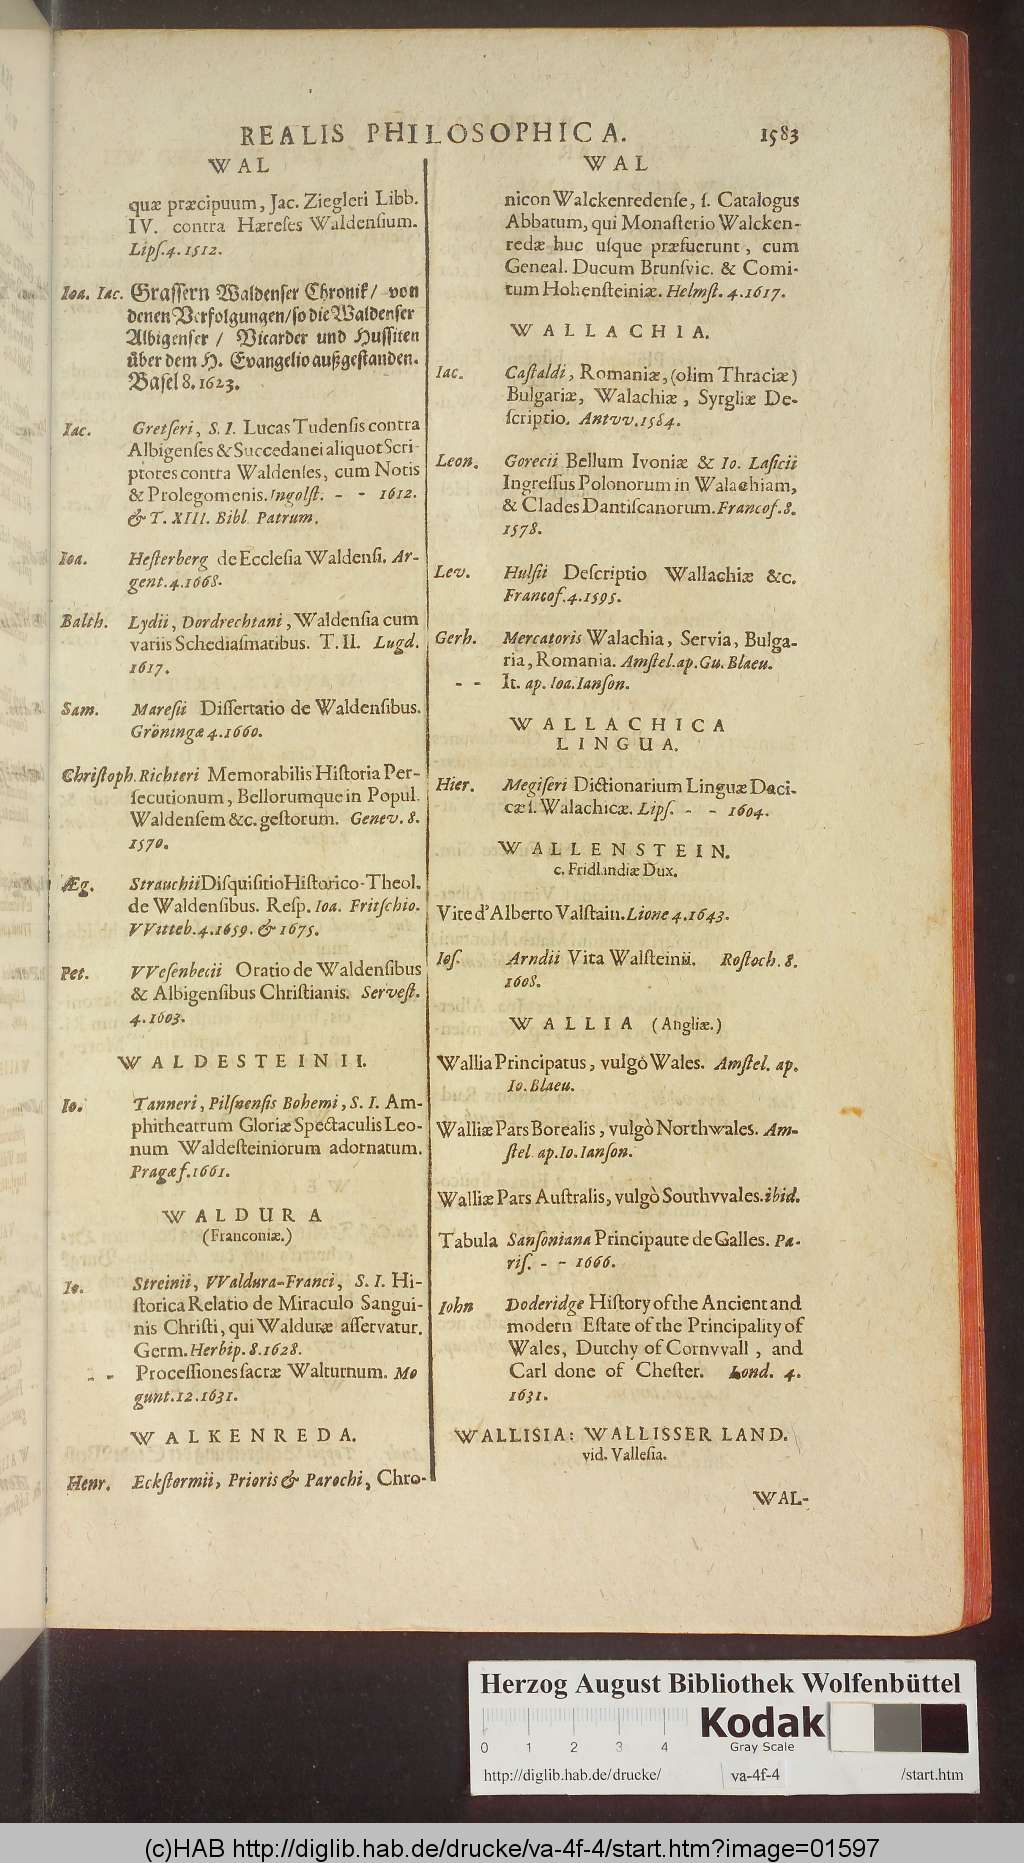 REALIS PHILOSOPHICA. 1583
WAL
quæ præcipuum, Jac. Ziegleri Libb.
IV. contra Hæreſes Waldenſium.
Lipſ. 4. 1512.
Ioa. Iac. Graſſern Waldenſer Chronik / von
denen Verfolgungen / ſo die Waldenſer
Albigenſer / Picarder und Huſſiten
über dem H. Evangelio außgeſtanden.
Baſel 8. 1623.
Iac. Gretſeri, S. I. Lucas Tudenſis contra
Albigenſes & Succedanei aliquot Scri-
ptores contra Waldenſes, cum Notis
& Prolegomenis. Ingolſt. - - 1612.
& T. XIII. Bibl. Patrum.
Ioa. Heſterberg de Eccleſia Waldenſi. Ar-
gent. 4. 1668.
Balth. Lydii, Dordrechtani, Waldenſia cum
variis Schediaſmatibus. T. II. Lugd.
1617.
Sam. Mareſii Diſſertatio de Waldenſibus.
Gröningæ 4. 1660.
Chriſtoph. Richteri Memorabilis Hiſtoria Per-
ſecutionum, Bellorumque in Popul.
Waldenſem &c. geſtorum. Genev. 8.
1570.
Æg. Strauchii Diſquiſitio Hiſtorico-Theol.
de Waldenſibus. Reſp. Ioa. Fritſchio.
VVitteb. 4. 1659. & 1675.
Pet. VVeſenbecii Oratio de Waldenſibus
& Albigenſibus Chriſtianis. Serveſt.
4. 1603.
WALDESTEINII.
Io. Tanneri, Pilſnenſis Bohemi, S. I. Am-
phitheatrum Gloriæ Spectaculis Leo-
num Waldeſteiniorum adornatum.
Pragæ f. 1661.
WALDURA
(Franconiæ.)
Io. Streinii, VValdura-Franci, S. I. Hi-
ſtorica Relatio de Miraculo Sangui-
nis Chriſti, qui Walduræ aſſervatur.
Germ. Herbip. 8. 1628.
- - Proceſſiones ſacræ Walturnum. Mo
gunt. 12. 1631.
WALKENREDA.
Henr. Eckſtormii, Prioris & Parochi, Chro-
WAL
nicon Walckenredenſe, ſ. Catalogus
Abbatum, qui Monaſterio Walcken-
redæ huc uſque præfuerunt, cum
Geneal. Ducum Brunſvic. & Comi-
tum Hohenſteiniæ. Helmſt. 4. 1617.
WALLACHIA.
Iac. Caſtaldi, Romaniæ, (olim Thraciæ)
Bulgariæ, Walachiæ, Syrgliæ De-
ſcriptio. Antvv. 1584.
Leon. Gorecii Bellum Ivoniæ & Io. Laſicii
Ingreſſus Polonorum in Walachiam,
& Clades Dantiſcanorum. Francof. 8.
1578.
Lev. Hulſii Deſcriptio Wallachiæ &c.
Francof. 4. 1595.
Gerh. Mercatoris Walachia, Servia, Bulga-
ria, Romania. Amſtel. ap. Gu. Blaeu.
- - It. ap. Ioa. Ianſon.
WALLACHICA
LINGUA.
Hier. Megiſeri Dictionarium Linguæ Daci-
cæ ſ. Walachicæ. Lipſ. - - 1604.
WALLENSTEIN.
c. Fridlandiæ Dux.
Vite d'Alberto Valſtain. Lione 4. 1643.
Ioſ. Arndii Vita Walſteinii. Roſtoch. 8.
1608.
WALLIA (Angliæ.)
Wallia Principatus, vulgò Wales. Amſtel. ap.
Io. Blaeu.
Walliæ Pars Borealis, vulgò Northwales. Am-
ſtel. ap. Io. Ianſon.
Walliæ Pars Auſtralis, vulgò Southvvales. ibid.
Tabula Sanſoniana Principaute de Galles. Pa-
riſ. - - 1666.
Iohn Doderidge Hiſtory of the Ancient and
modern Eſtate of the Principality of
Wales, Dutchy of Cornvvall, and
Carl done of Cheſter. Lond. 4.
1631.
WALLISIA: WALLISSER LAND.
vid. Valleſia.
WAL-
Herzog August Bibliothek Wolfenbüttel
0 1 2 3 4
Kodak
Gray Scale
http://diglib.hab.de/drucke/ va-4f-4 /start.htm
(c)HAB http://diglib.hab.de/drucke/va-4f-4/start.htm?image=01597